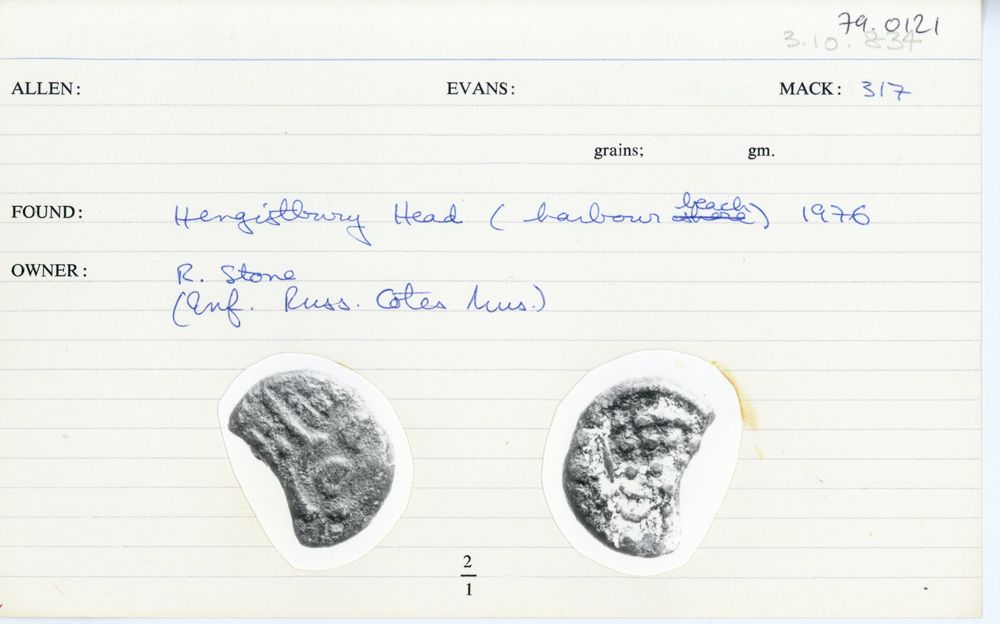 79.0121
3.10.834
ALLEN: EVANS: MACK: 317
grains; gm.
FOUND: Hengistbury Head (harbour shore beach) 1976
OWNER: R. Stone
(Inf. Russ. Cotes Mus.)
2
1